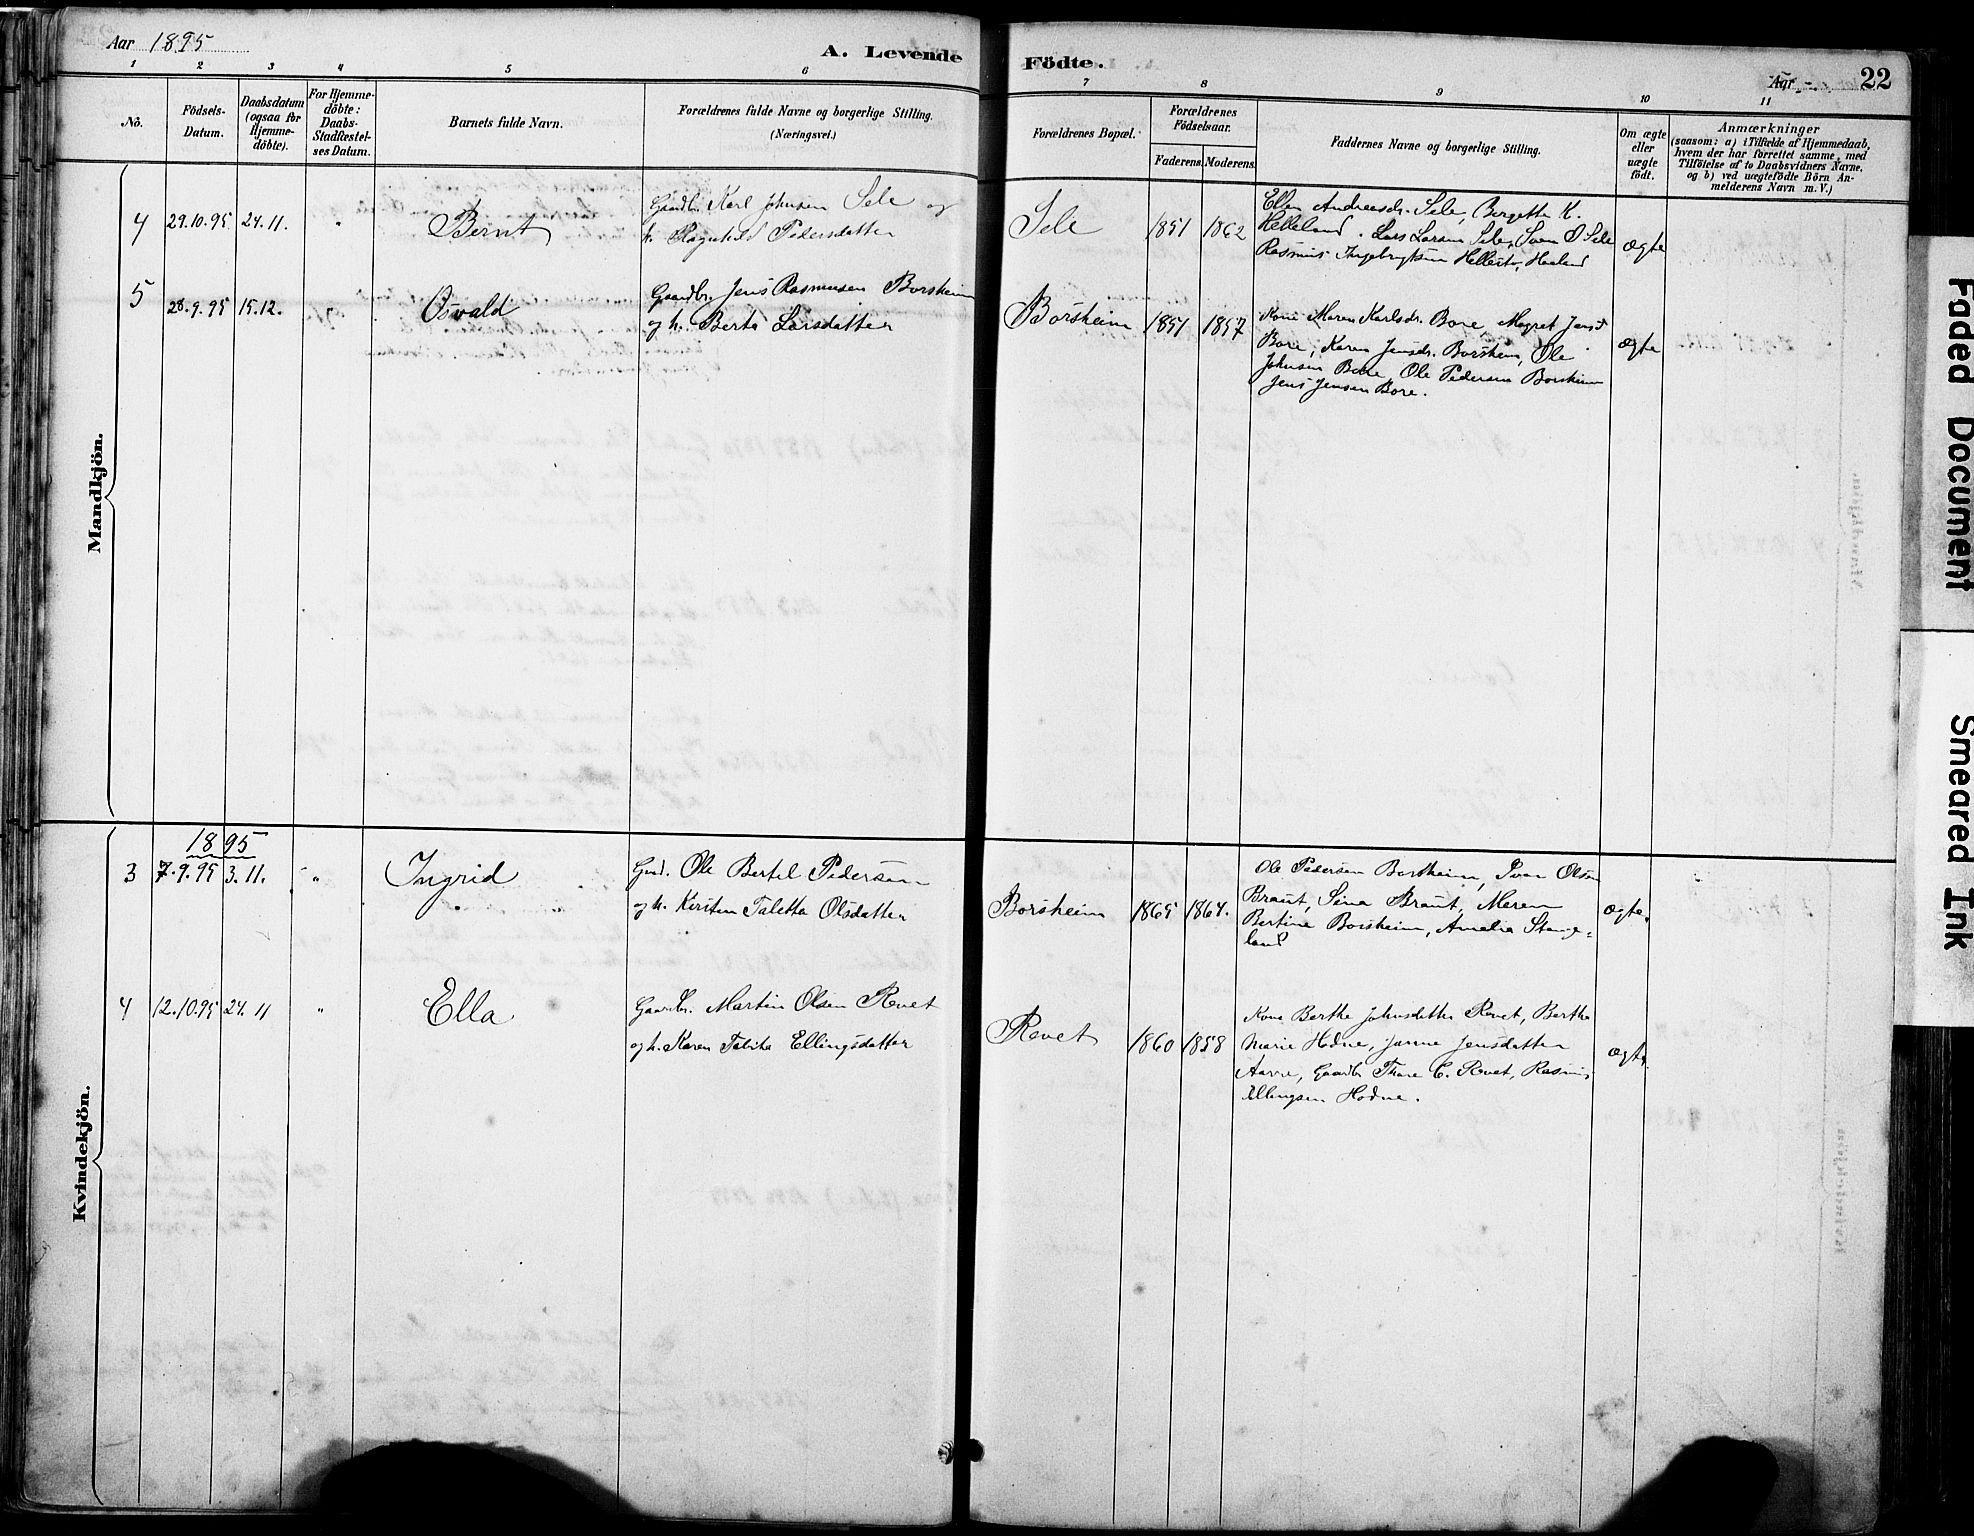 Aar 1895
A. Levende Födte.
Aar
22
1 2 3 4 5 6 7 8 9 10 11
Nô.
Födsels-
Datum.
Daabsdatum
(ogsaa for
Hjemme-
döbte).
For Hjemme-
döbte:
Daabs-
Stadfæstel-
ses Datum.
Barnets fulde Navn.
Forældrenes fulde Navne og borgerlige Stilling.
(Næringsvei.)
Forældrenes Bopæl.
Forældrenes
Födselsaar.
Faderens. Moderens.
Faddernes Navne og borgerlige Stilling.
Om ægte
eller
uægte
födt.
Anmærkninger
(saasom: a) i Tilfælde af Hjemmedaab,
hvem der har forrettet samme, med
Tilföielse af to Daabsvidners Navne,
og b) ved uægtefödte Börn An-
melderens Navn m. V.)
Mandkjön.
4 29.10.95 24.11. " Bernt
Gaardbr. Karl Johnsen Sele og
h. Ragnhild Pedersdatter
Sele 1851 1862
Ellen Andreasdr. Sele, Bergette K.
Helleland. Lars Larsen Sele, Sven O Sele
Rasmus Ingebrygtsen Hellestø, Haaland
ægte
5 28.9.95 15.12. Osvald
Gaardbr. Jens Rasmusen Borsheim
og h. Berta Larsdatter
Borsheim 1851 1857
Kone Maren Karlsdr. Bore, Magret Jensd
Bore, Karen Jensdr. Borsheim, Ole
Johnsen Bore, Ole Pedersen Borsheim
Jens Jensen Bore.
ægte
Kvindekjön.
1895
3 7.9.95 3.11. " Ingrid
Grd. Ole Bertel Pedersen
og h. Kirsten Taletta Olsdatter
Borsheim 1865 1864.
Ole Pedersen Borsheim, Sven Olsen
Braut, Sina Braut, Meren
Bertine Borsheim, Amalia Stange-
land
ægte.
4 12.10.95 24.11 " Ella
Gaardbr. Martin Olsen Revet
og h. Karen Tabita Ellingsdatter
Revet 1860 1858
Kone Berthe Johnsdatter Revet, Berthe
Marie Hodne, Janne Jensdatter
Aarre, Gaardbr Thore C. Revet, Rasmus
Ellingsen Hodne.
ægte
Faded Document
Smeared Ink